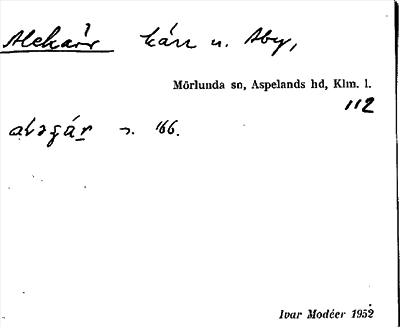 Alekärr kärr u. Aby,
Mörlunda sn, Aspelands hd, Klm. l.
112
s. 166.
Ivar Modéer 1952